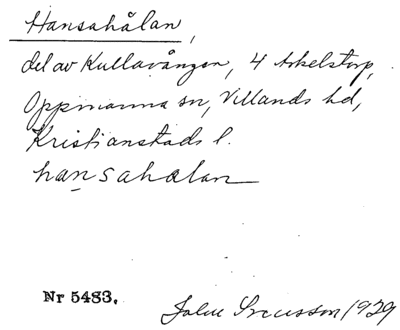 Hansahålan,
del av Kullavången, 4 Arkelstorp,
Oppmanna sn, Villands hd,
Kristianstads l.
hansahalan
Nr 5483.
John Svensson 1929